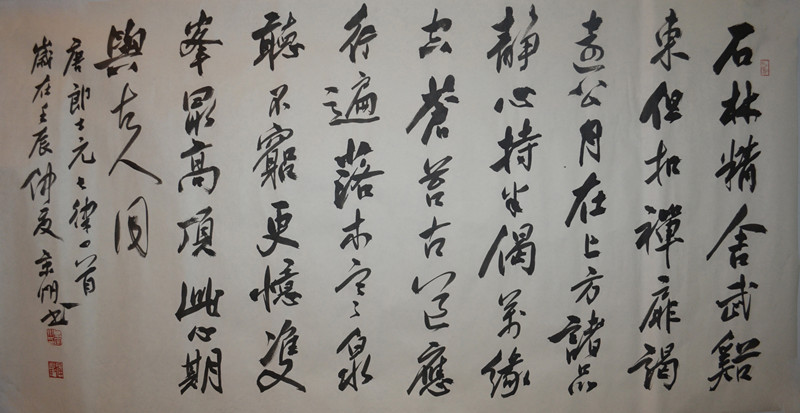 石林精舍武谿
東但扣禪扉謁
遠公月在上方諸品
靜心持半偈萬緣
空蒼苔古道應
行遍落木寒泉
聽不窮更憶雙
峯最高頂此心期
與古人同
唐郎士元七律一首
歲在壬辰仲夏京書